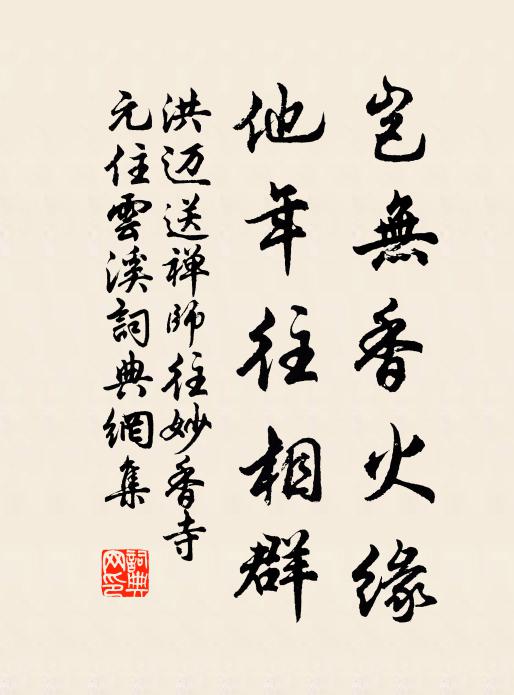 豈無香火緣
他年往相群
洪迈送禅師往妙香寺
元住雲溪詞典網集
詞典网印